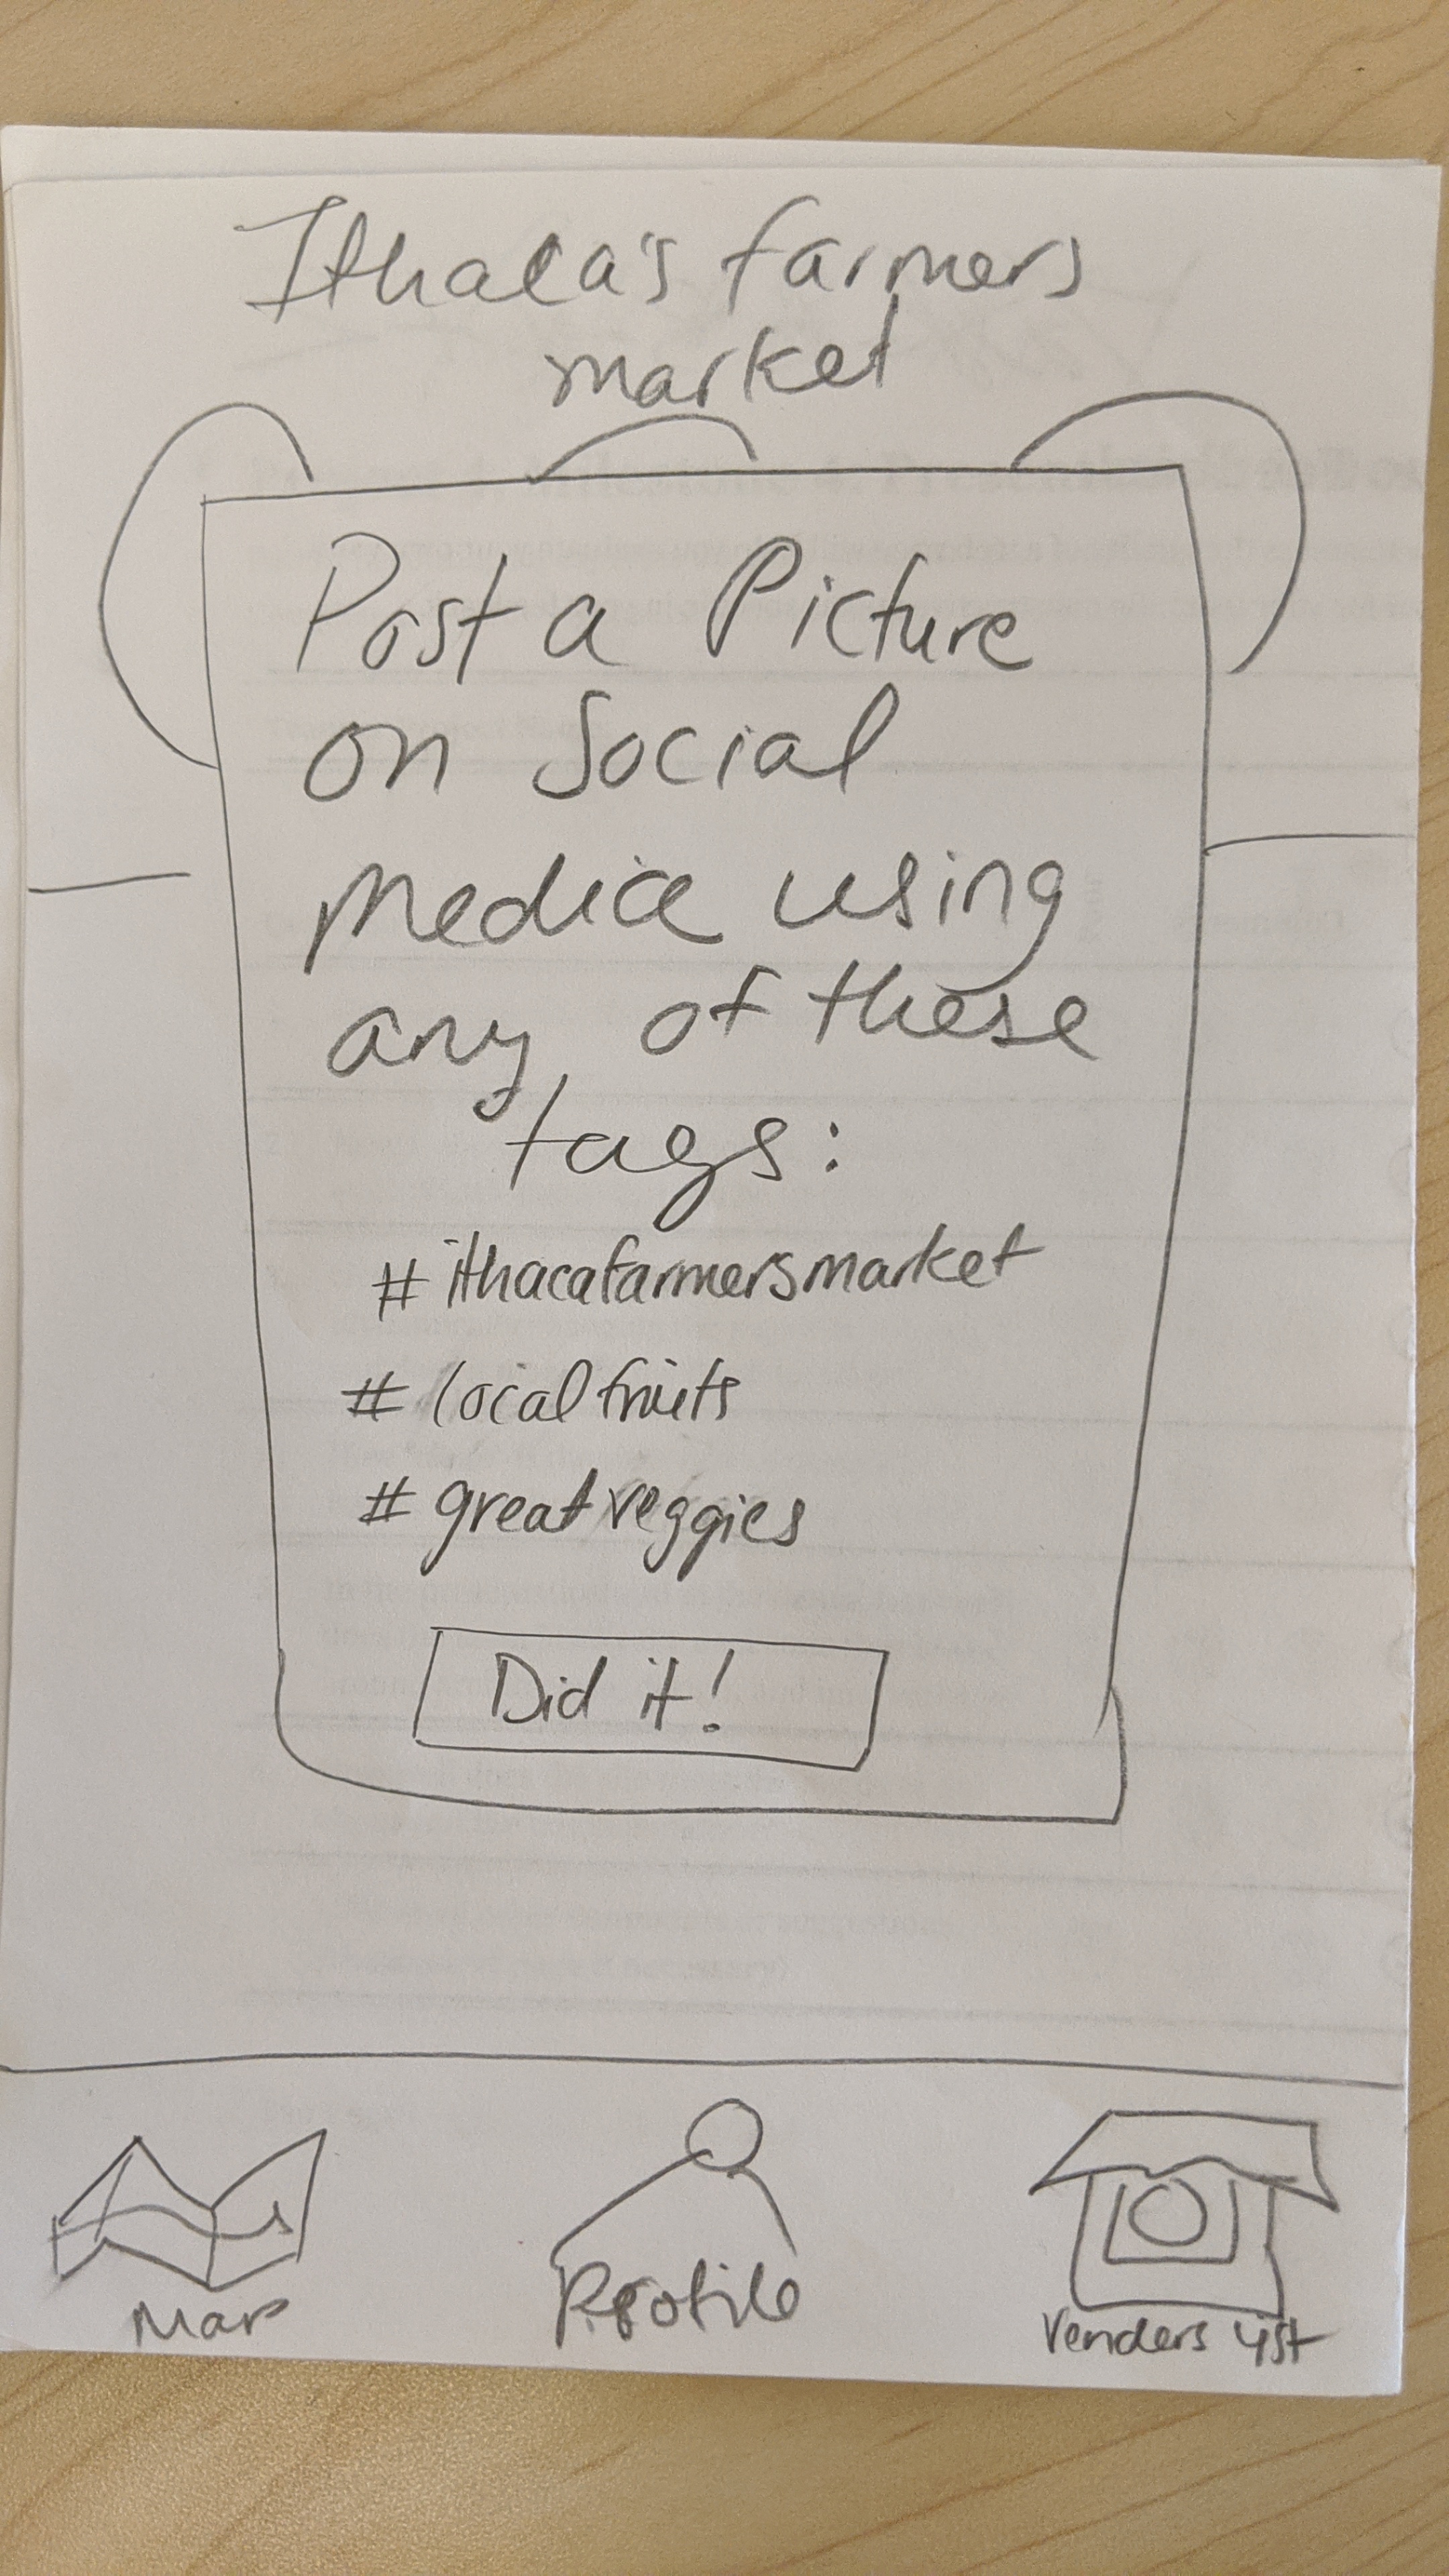 Ithaca's farmers
market
Post a Picture
on Social
media using
any of these
tags:
#ithacafarmersmarket
#localfruits
#greatveggies
Did it!
Map
Profile
Venders list